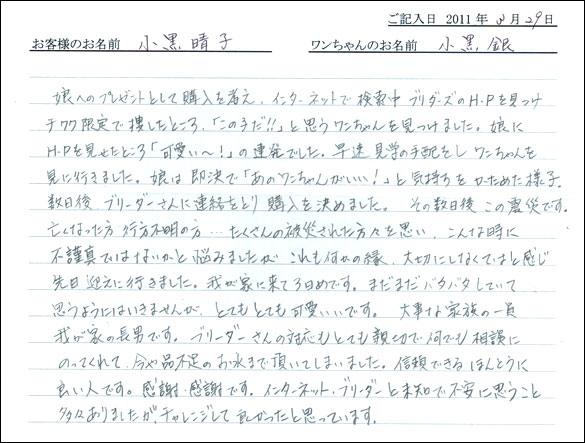 ご記入日 2011年3月29日
お客様のお名前 小黒晴子 ワンちゃんのお名前 小黒 銀
娘へのプレゼントとして購入を考え、インターネットで検索中 ブリーダーズのH・Pを見つけ
チワワ限定で捜したところ、「この子だ!!」と思うワンちゃんを見つけました。娘に
H・Pを見せたところ「可愛い〜!」の連発でした。早速 見学の手配をし ワンちゃんを
見に行きました。娘は 即決で「あのワンちゃんがいい!」と気持ちを かためた様子。
数日後 ブリーダーさんに連絡をとり 購入を決めました。 その数日後 この震災です。
亡くなった方 行方不明の方…たくさんの被災された方々を思い、こんな時に
不謹真ではないかと悩みましたが これも何かの縁、大切にしなくてはと感じ
先日 迎えに行きました。我が家に来て3日めです。まだまだバタバタしていて
思うようにはいきませんが、とてもとても可愛いいです。 大事な家族の一員
我が家の長男です。ブリーダーさんの対応もとても親切で何でも相談に
のってくれて、今や品不足のお水まで頂いてしまいました。信頼できる ほんとうに
良い人です。感謝・感謝です。インターネット・ブリーダーと未知で不安に思うこと
多々ありましたが、チャレンジして良かったと思っています。